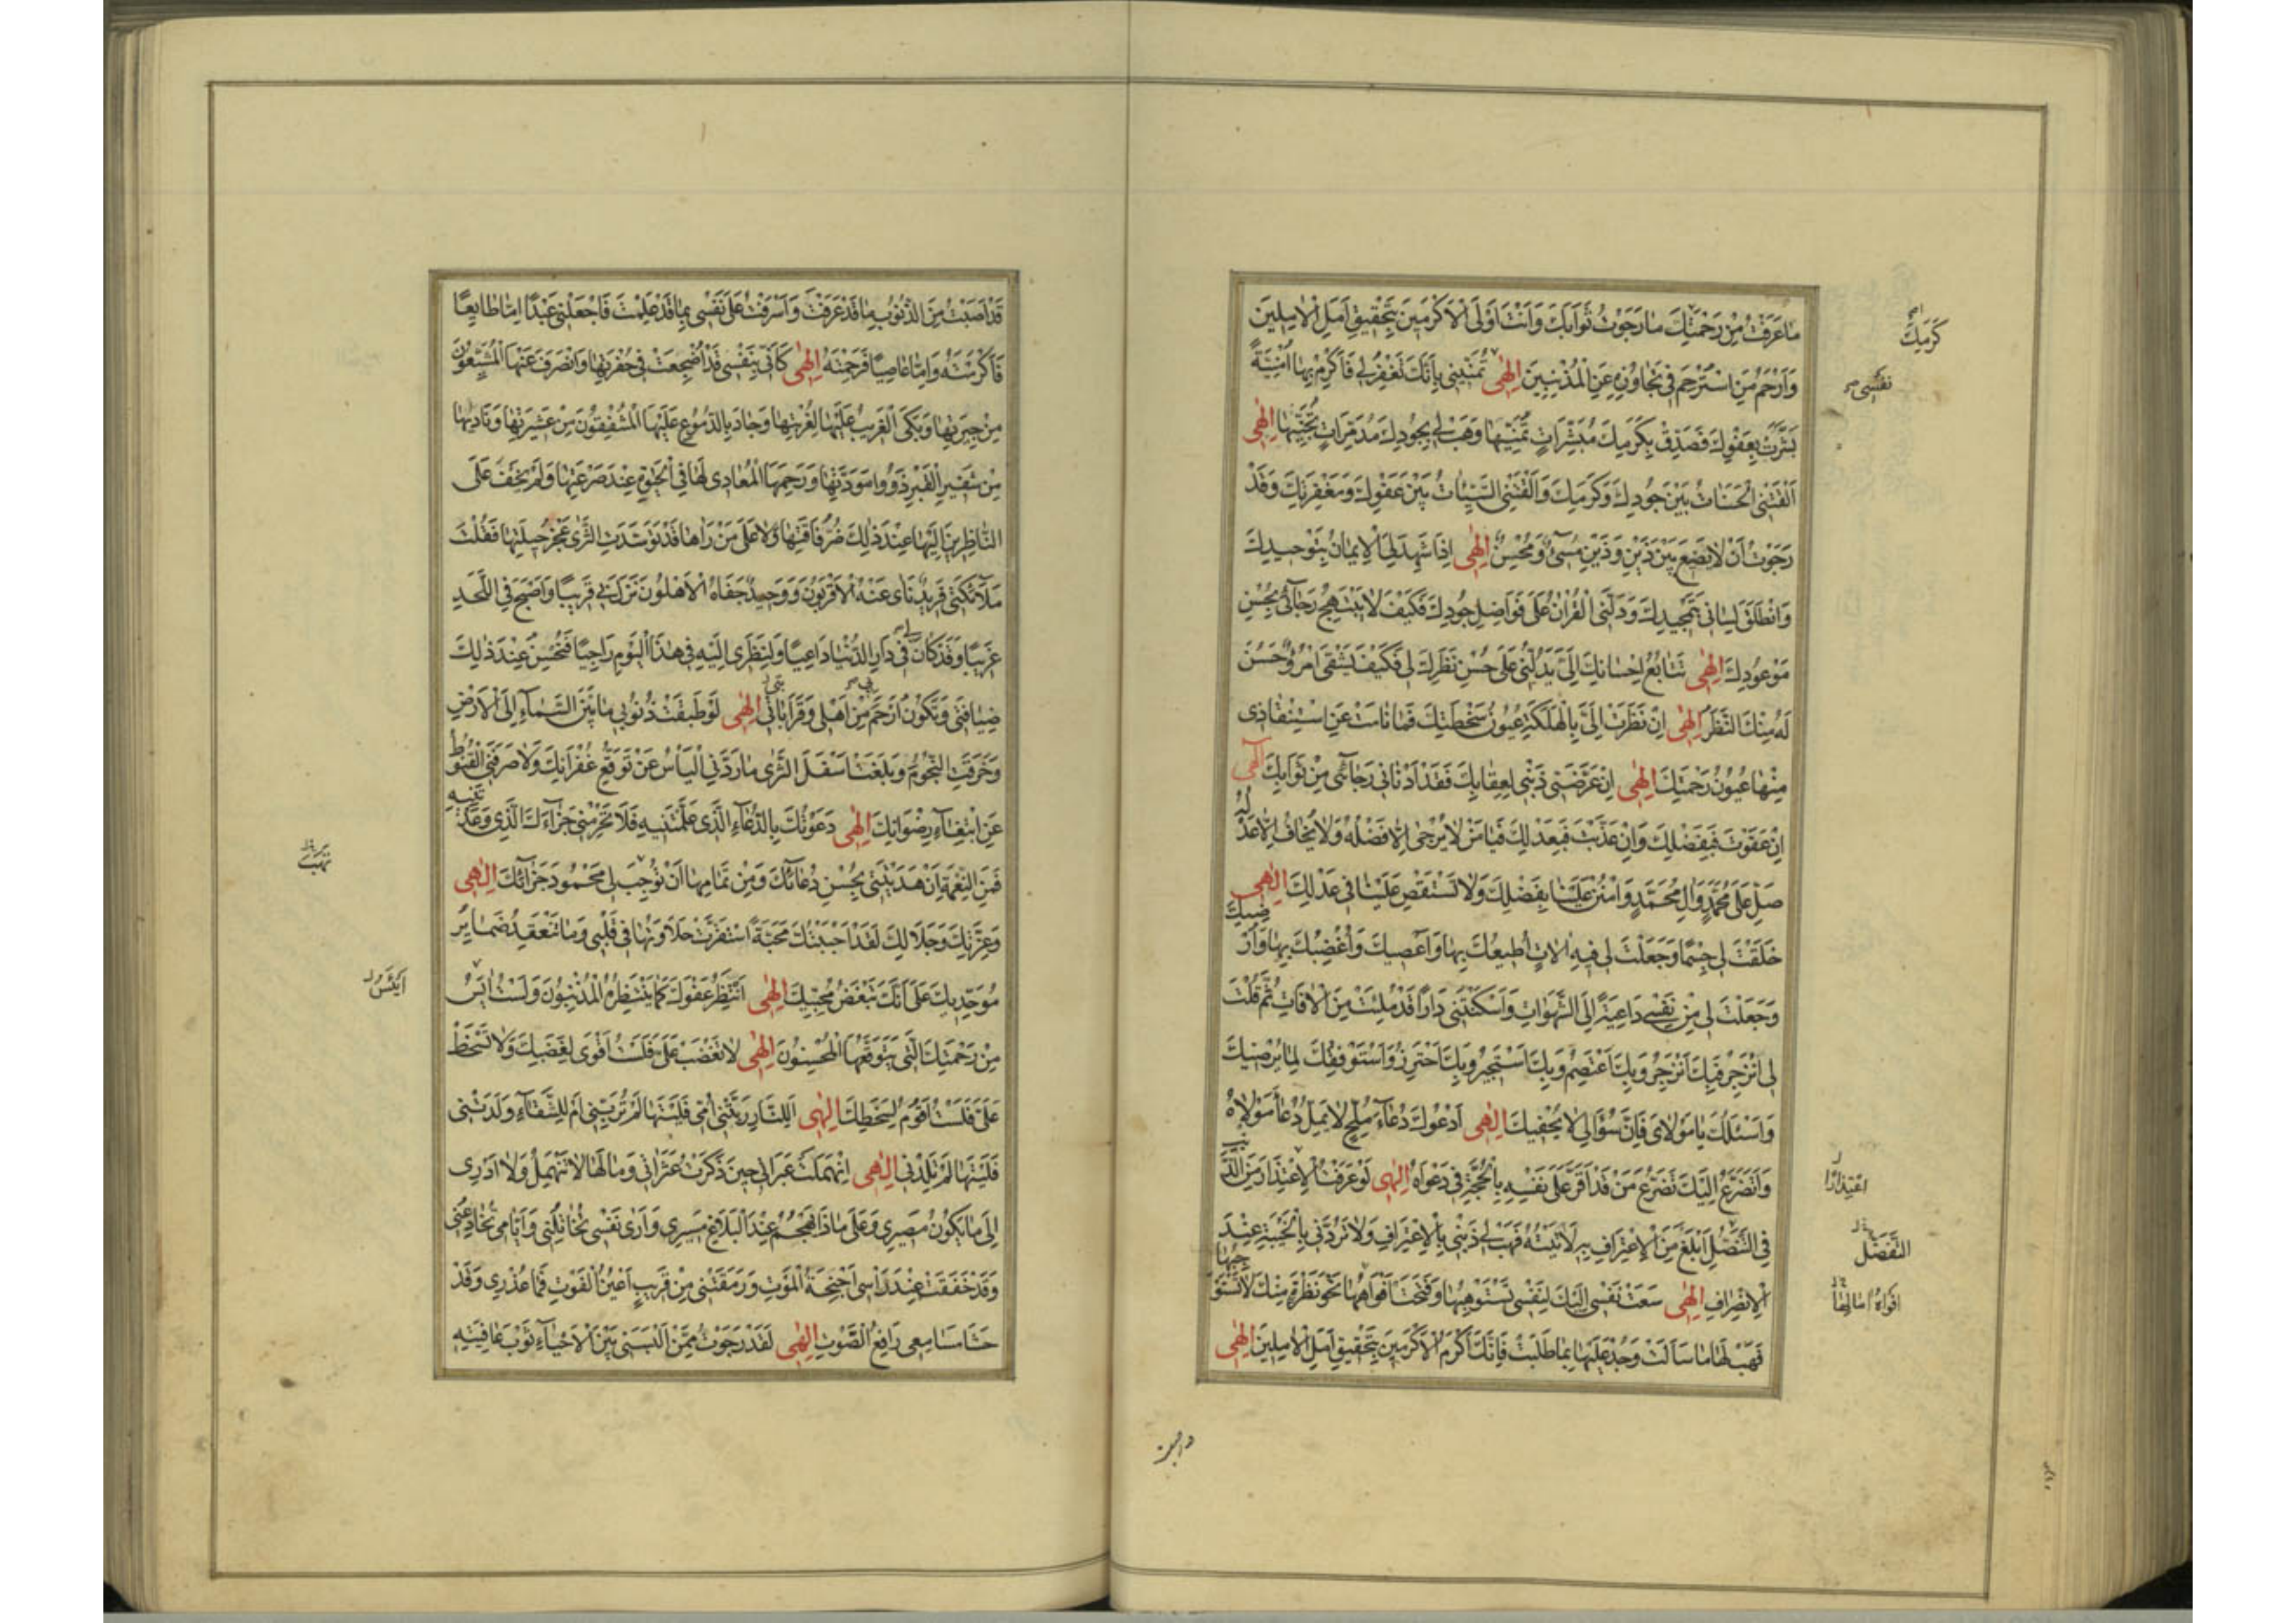 ما عَرَفْتُ مِنْ رَحْمَتِكَ ما رَجَوْتُ ثَوابَكَ وَاَنْتَ اَوْلَى الْاَكْرَمينَ بِتَحْقيقِ اَمَلِ الْاٰمِلينَ
كَرَمِكَ
وَاَرْحَمُ مَنِ اسْتُرْحِمَ فى تَجاوُزِهِ عَنِ الْمُذْنِبينَ اِلٰهى تُمَنّينى بِاَنَّكَ تَغْفِرُ لى فَاَكْرِمْ بِها اُمْنِيَّةً
نفسى
بَشَّرَتْ بِعَفْوِكَ فَصَدِّقْ بِكَرَمِكَ مُبَشِّراتِ تَمَنّيها وَهَبْ لى بِجُودِكَ مُدَمِّراتِ تَجَنّيها اِلٰهى
اَلْقَتْنى الْحَسَناتُ بَيْنَ جُودِكَ وَكَرَمِكَ وَاَلْقَتْنى السَّيِّئاتُ بَيْنَ عَفْوِكَ وَمَغْفِرَتِكَ وَقَدْ
رَجَوْتُ اَنْ لا يَضيعَ بَيْنَ ذَيْنِ وَذَيْنِ مُسىءٌ وَمُحْسِنٌ اِلٰهى اِذا شَهِدَ لِىَ الْايمانُ بِتَوْحيدِكَ
وَانْطَلَقَ لِسانى بِتَمْجيدِكَ وَدَلَّنى الْقُرْاٰنُ عَلى فَواضِلِ جُودِكَ فَكَيْفَ لا يَبْتَهِجُ رَجائى بِحُسْنِ
مَوْعُودِكَ اِلٰهى تَتابُعُ اِحْسانِكَ اِلَىَّ يَدُلُّنى عَلى حُسْنِ نَظَرِكَ لى فَكَيْفَ يَشْقَى امْرُؤٌ حَسُنَ
لَهُ مِنْكَ النَّظَرُ اِلٰهى اِنْ نَظَرَتْ اِلَىَّ بِالْهَلَكَةِ عُيُونُ سَخْطَتِكَ فَما نامَتْ عَنِ اسْتِنْقاذى
مِنْها عُيُونُ رَحْمَتِكَ اِلٰهى اِنْ عَرَّضَنى ذَنْبى لِعِقابِكَ فَقَدْ اَدْنانى رَجائى مِنْ ثَوابِكَ اِلٰهى
اِنْ عَفَوْتَ فَبِفَضْلِكَ وَاِنْ عَذَّبْتَ فَبِعَدْلِكَ فَيا مَنْ لا يُرْجى اِلّا فَضْلُهُ وَلا يُخافُ اِلّا عَدْلُهُ
صَلِّ عَلى مُحَمَّدٍ وَاٰلِ مُحَمَّدٍ وَامْنُنْ عَلَيْنا بِفَضْلِكَ وَلا تَسْتَقْصِ عَلَيْنا فى عَدْلِكَ اِلٰهى
خَلَقْتَ لى جِسْمًا وَجَعَلْتَ لى فيهِ اٰلاتٍ اُطيعُكَ بِها وَاَعْصيكَ وَاُغْضِبُكَ بِها وَاُرْضيكَ
وَجَعَلْتَ لى مِنْ نَفْسى داعِيَةً اِلَى الشَّهَواتِ وَاَسْكَنْتَنى دارًا قَدْ مُلِئَتْ مِنَ الْاٰفاتِ ثُمَّ قُلْتَ
لى انْزَجِرْ فَبِكَ اَنْزَجِرُ وَبِكَ اَعْتَصِمُ وَبِكَ اَسْتَجيرُ وَبِكَ اَحْتَرِزُ وَاَسْتَوْفِقُكَ لِما يُرْضيكَ
وَاَسْئَلُكَ يا مَوْلاىَ فَاِنَّ سُؤالى لا يُحْفيكَ اِلٰهى اَدْعُوكَ دُعاءَ مُلِحٍّ لا يَمِلُّ دُعاءَ مَوْلاهُ
وَاَتَضَرَّعُ اِلَيْكَ تَضَرُّعَ مَنْ قَدْ اَقَرَّ عَلى نَفْسِهِ بِالْحُجَّةِ فى دَعْواهُ اِلٰهى لَوْ عَرَفْتُ الْاِعْتِذارَ مِنَ الذَّنْبِ
اعتذارًا
فِى التَّنَصُّلِ اَبْلَغَ مِنَ الْاِعْتِرافِ بِهِ لَاَتَيْتُهُ فَهَبْ لى ذَنْبى بِالْاِعْتِرافِ وَلا تَرُدَّنى بِالْخَيْبَةِ عِنْدَ
التَّفَضُّل
الْاِنْصِرافِ اِلٰهى سَعَتْ نَفْسى اِلَيْكَ لِنَفْسى تَسْتَوْهِبُها وَفَتَحَتْ اَفْواهُها نَحْوَ نَظْرَةٍ مِنْكَ لا تَسْتَوْجِبُها
افواه امالها
فَهَبْ لَها ما سَاَلَتْ وَجُدْ عَلَيْها بِما طَلَبَتْ فَاِنَّكَ اَكْرَمُ الْاَكْرَمينَ بِتَحْقيقِ اَمَلِ الْاٰمِلينَ اِلٰهى
قد اصبت
قَدْ اَصَبْتُ مِنَ الذُّنُوبِ ما قَدْ عَرَفْتَ وَاَسْرَفْتُ عَلى نَفْسى بِما قَدْ عَلِمْتَ فَاجْعَلْنى عَبْدًا اِمّا طائِعًا
فَاَكْرَمْتَهُ وَاِمّا عاصِيًا فَرَحِمْتَهُ اِلٰهى كَاَنّى بِنَفْسى قَدْ اُضْجِعَتْ فى حُفْرَتِها وَانْصَرَفَ عَنْهَا الْمُشَيِّعُونَ
مِنْ جيرَتِها وَبَكَى الْغَريبُ عَلَيْها لِغُرْبَتِها وَجادَ بِالدُّمُوعِ عَلَيْهَا الْمُشْفِقُونَ مِنْ عَشيرَتِها وَناديها
مِنْ شَفيرِ الْقَبْرِ ذَوُوا مَوَدَّتِها وَرَحِمَهَا الْمُعادى لَها فِى الْحَيٰوةِ عِنْدَ صَرْعَتِها وَلَمْ يَخْفَ عَلَى
النّاظِرينَ اِلَيْها عِنْدَ ذٰلِكَ ضُرُّ فاقَتِها وَلا عَلى مَنْ رَاٰها قَدْ تَوَسَّدَتِ الثَّرى عَجْزُ حيلَتِها فَقُلْتَ
مَلٰٓائِكَتى فَريدٌ نَأى عَنْهُ الْاَقْرَبُونَ وَوَحيدٌ جَفاهُ الْاَهْلُونَ نَزَلَ بى قَريبًا وَاَصْبَحَ فِى اللَّحْدِ
غَريبًا وَقَدْ كانَ لى فى دارِ الدُّنْيا داعِيًا وَلِنَظَرى اِلَيْهِ فى هٰذَا الْيَوْمِ راجِيًا فَتُحْسِنُ عِنْدَ ذٰلِكَ
ضِيافَتى وَتَكُونُ اَرْحَمَ بى مِنْ اَهْلى وَقَراباتى اِلٰهى لَوْ طَبَّقَتْ ذُنُوبى ما بَيْنَ السَّماءِ اِلَى الْاَرْضِ
وَخَرَقَتِ النُّجُومَ وَبَلَغَتْ اَسْفَلَ الثَّرى ما رَدَّنى الْيَأْسُ عَنْ تَوَقُّعِ غُفْرانِكَ وَلا صَرَفَنى الْقُنُوطُ
عَنِ ابْتِغاءِ رِضْوانِكَ اِلٰهى دَعَوْتُكَ بِالدُّعاءِ الَّذى عَلَّمْتَنيهِ فَلا تَحْرِمْنى جَزاءَكَ الَّذى وَعَدْتَنيهِ
فَمِنَ النِّعْمَةِ اَنْ هَدَيْتَنى بِحُسْنِ دُعائِكَ وَمِنْ تَمامِها اَنْ تُوجِبَ لى مَحْمُودَ جَزائِكَ اِلٰهى
وَعِزَّتِكَ وَجَلالِكَ لَقَدْ اَحْبَبْتُكَ مَحَبَّةً اسْتَقَرَّتْ حَلاوَتُها فى قَلْبى وَما تَنْعَقِدُ ضَمايِرُ
مُوَحِّديكَ عَلى اَنَّكَ تُبْغِضُ مُحِبّيكَ اِلٰهى اَنْتَظِرُ عَفْوَكَ كَما يَنْتَظِرُهُ الْمُذْنِبُونَ وَلَسْتُ اٰيَسُ
مِنْ رَحْمَتِكَ الَّتى يَتَوَقَّعُهَا الْمُحْسِنُونَ اِلٰهى لا تَغْضَبْ عَلَىَّ فَلَسْتُ اَقْوى لِغَضَبِكَ وَلا تَسْخَطْ
عَلَىَّ فَلَسْتُ اَقُومُ لِسَخَطِكَ اِلٰهى اَلِلنّارِ رَبَّتْنى اُمّى فَلَيْتَها لَمْ تُرَبِّنى اَمْ لِلشَّقاءِ وَلَدَتْنى
فَلَيْتَها لَمْ تَلِدْنى اِلٰهى اِنْهَمَلَتْ عَبَراتى حينَ ذَكَرْتُ عَثَراتى وَما لَها لا تَنْهَمِلُ وَلا اَدْرى
اِلى ما يَكُونُ مَصيرى وَعَلى ماذا يَهْجُمُ عِنْدَ الْبَلاغِ مَسيرى وَاَرى نَفْسى تُخاتِلُنى وَاَيّامى تُخادِعُنى
وَقَدْ خَفَقَتْ عِنْدَ رَاْسى اَجْنِحَةُ الْمَوْتِ وَرَمَقَتْنى مِنْ قَريبٍ اَعْيُنُ الْفَوْتِ فَما عُذْرى وَقَدْ
حَشا مَسامِعى رافِعُ الصَّوْتِ اِلٰهى لَقَدْ رَجَوْتُ مِمَّنْ اَلْبَسَنى بَيْنَ الْاَحْياءِ ثَوْبَ عافِيَتِهِ